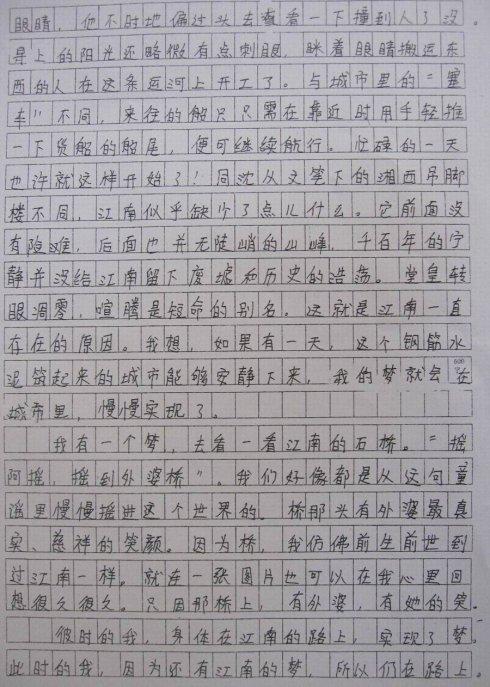 眼睛，他不时地偏过头去查看一下撞到人了没。
早上的阳光还略微有点刺眼，眯着眼睛搬运东
西的人在这条运河上开工了。与城市里的“塞
车”不同，来往的船只只需在靠近时用手轻推
一下货船的船尾，便可继续航行。忙碌的一天
也许就这样开始了！同沈从文笔下的湘西吊脚
楼不同，江南似乎缺少了点儿什么。它前面没
有险滩，后面也并无陡峭的山峰，千百年的宁
静并没给江南留下废墟和历史的浩荡。堂皇转
眼凋零，喧腾是短命的别名。这就是江南一直
存在的原因。我想，如果有一天，这个钢筋水
600
泥筑起来的城市能够安静下来，我的梦就会在
城市里，慢慢实现了。
我有一个梦，去看一看江南的石桥。“摇
阿摇，摇到外婆桥”。我们好像都是从这句童
谣里慢慢摇进这个世界的。桥那头有外婆最真
实、慈祥的笑颜。因为桥，我仿佛前生前世到
过江南一样。就连一张图片也可以在我心里回
想很久很久。只因那桥上，有外婆，有她的笑。
彼时的我，身体在江南的路上，实现了梦。
此时的我，因为还有江南的梦，所以仍在路上。